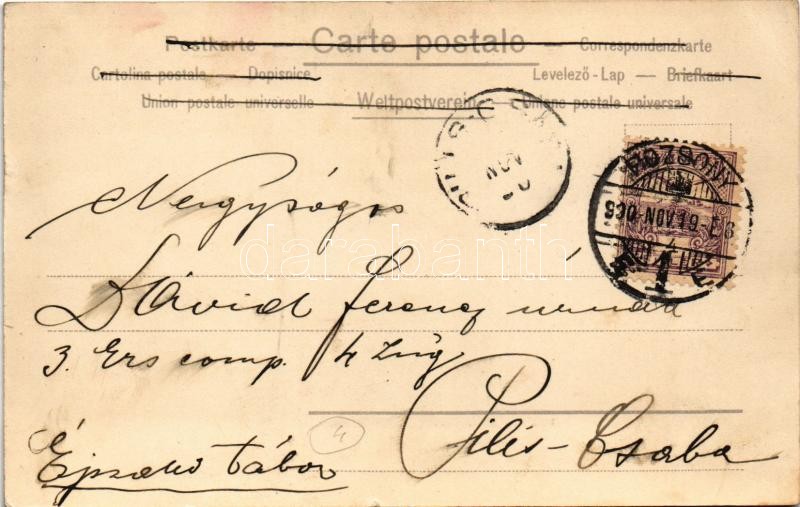 Postkarte — Carte postale — Correspondenzkarte
Cartolina postale — Dopisnice Levelező-Lap — Briefkaart
Union postale universelle — Weltpostverein — Unione postale universale
POZSONY
1
NOV
darabanth
Nagyságos
Dávid Ferencz urnak
3. Ers comp. 4 Zug
Pilis-Csaba
Éjszaki tábor
4